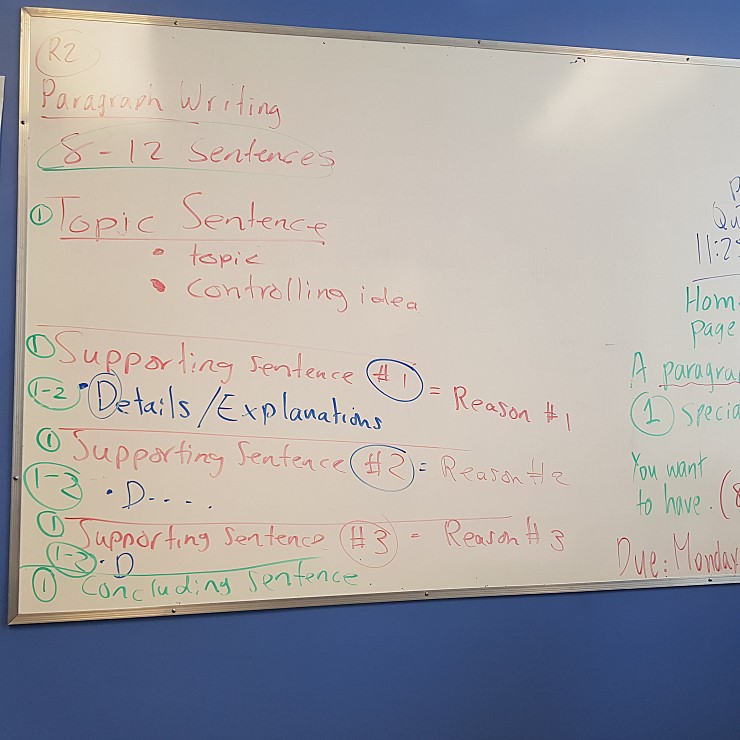 R2
Paragraph Writing
8-12 Sentences
① Topic Sentence
• topic
• controlling idea
① Supporting Sentence #1 = Reason #1
1-2 • Details/Explanations
① Supporting Sentence #2 = Reason #2
1-2 • D----.
① Supporting Sentence #3 = Reason #3
1-2 • D
① Concluding Sentence.
P
Qu
11:2
Hom
page
A paragra
① Specia
You want
to have. (8
Due: Monday